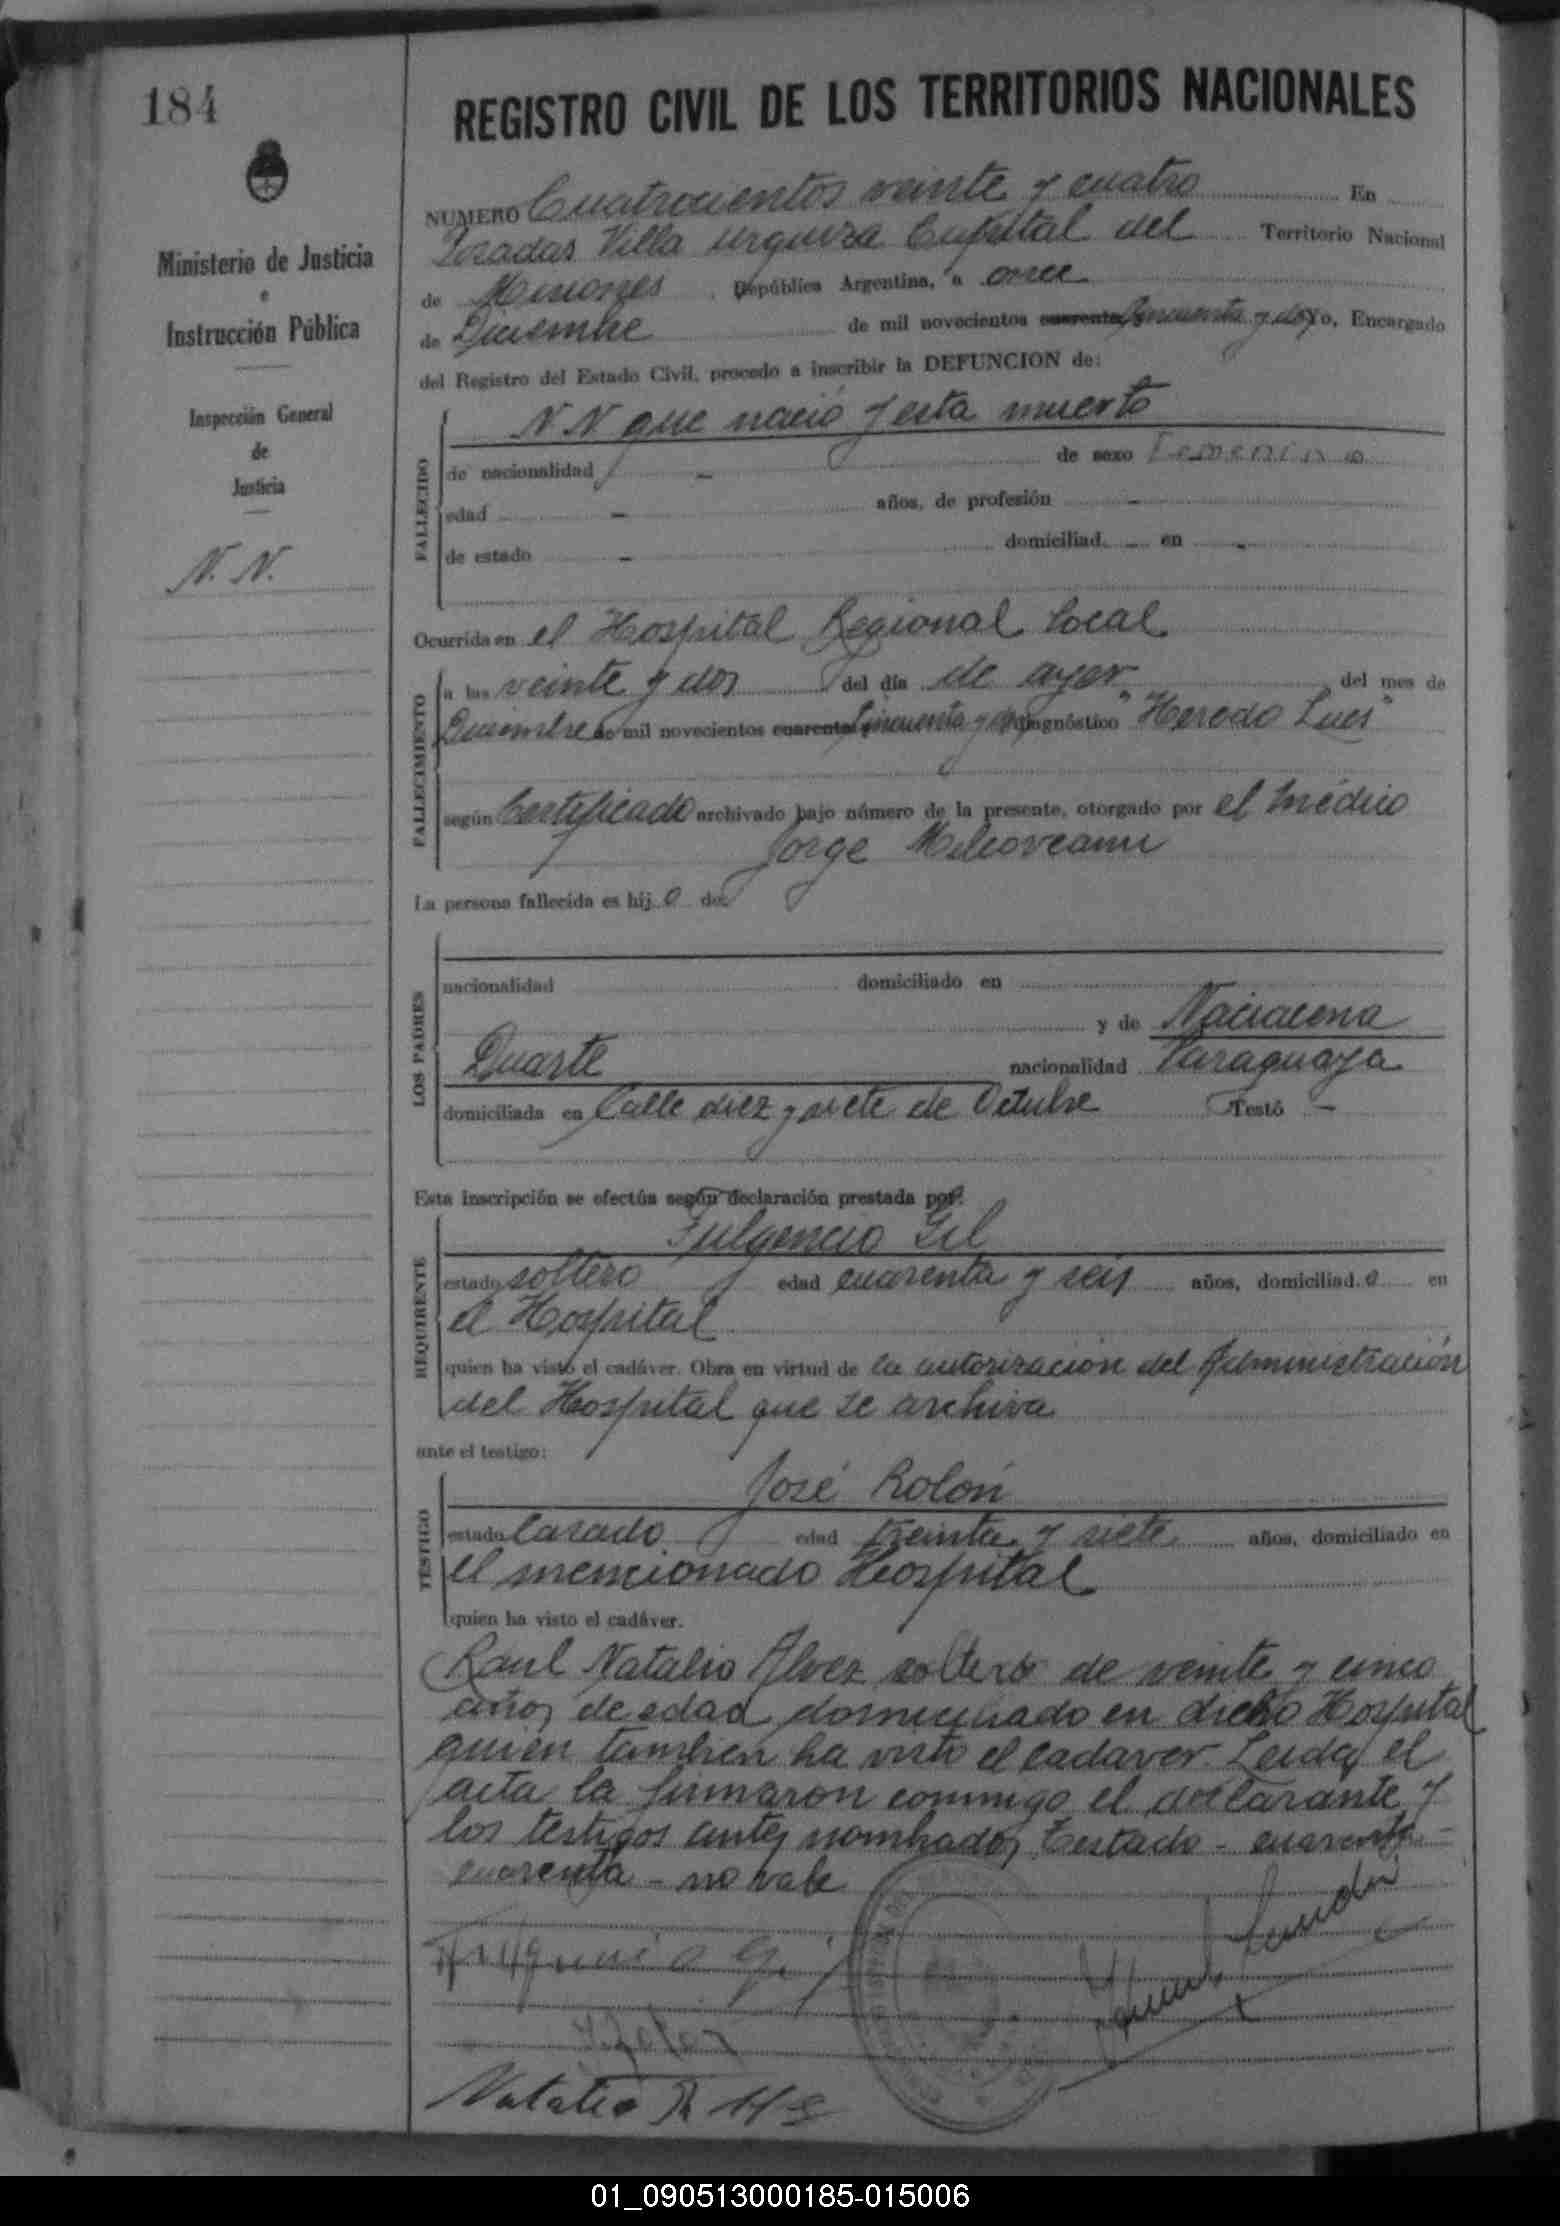 184
Ministerio de Justicia
e
Instrucción Pública
Inspección General
de
Justicia
N. N.
REGISTRO CIVIL DE LOS TERRITORIOS NACIONALES
NUMERO Cuatrocientos veinte y cuatro En
Posadas Villa Urquiza Capital del Territorio Nacional
de Misiones, República Argentina, a once
de Diciembre de mil novecientos cuarenta Cincuenta y dos Yo, Encargado
del Registro del Estado Civil, procedo a inscribir la DEFUNCION de:
FALLECIDO
N N que nació y esta muerto
de nacionalidad - de sexo Femenino
edad - años, de profesión -
de estado - domiciliad. - en -
Ocurrida en el Hospital Regional local
FALLECIMIENTO
a las veinte y dos del día de ayer del mes de
Diciembre de mil novecientos cuarenta Cincuenta y dos diagnóstico "Heredo Lues"
según Certificado archivado bajo número de la presente, otorgado por el Médico
Jorge Milcoveanu
La persona fallecida es hij o de:
LOS PADRES
nacionalidad domiciliado en
y de Naciacena
Duarte nacionalidad Paraguaya
domiciliada en Calle diez y siete de Octubre Testó -
Esta inscripción se efectúa según declaración prestada por:
REQUIRENTE
Fulgencio Gil
estado soltero edad cuarenta y seis años, domiciliad.o en
el Hospital
quien ha visto el cadáver. Obra en virtud de la autorización del Administración
del Hospital que se archiva
ante el testigo:
TESTIGO
José Rolón
estado Casado edad treinta y siete años, domiciliado en
el mencionado Hospital
quien ha visto el cadáver.
Raul Natalio Alvez soltero de veinte y cinco
años de edad domiciliado en dicho Hospital
quien tambien ha visto el cadaver. Leida el
acta la firmaron conmigo el declarante y
los testigos antes nombrados Testado - cuarenta -
cuarenta - no vale
Fulguencio Gil
Natalio R
01_090513000185-015006